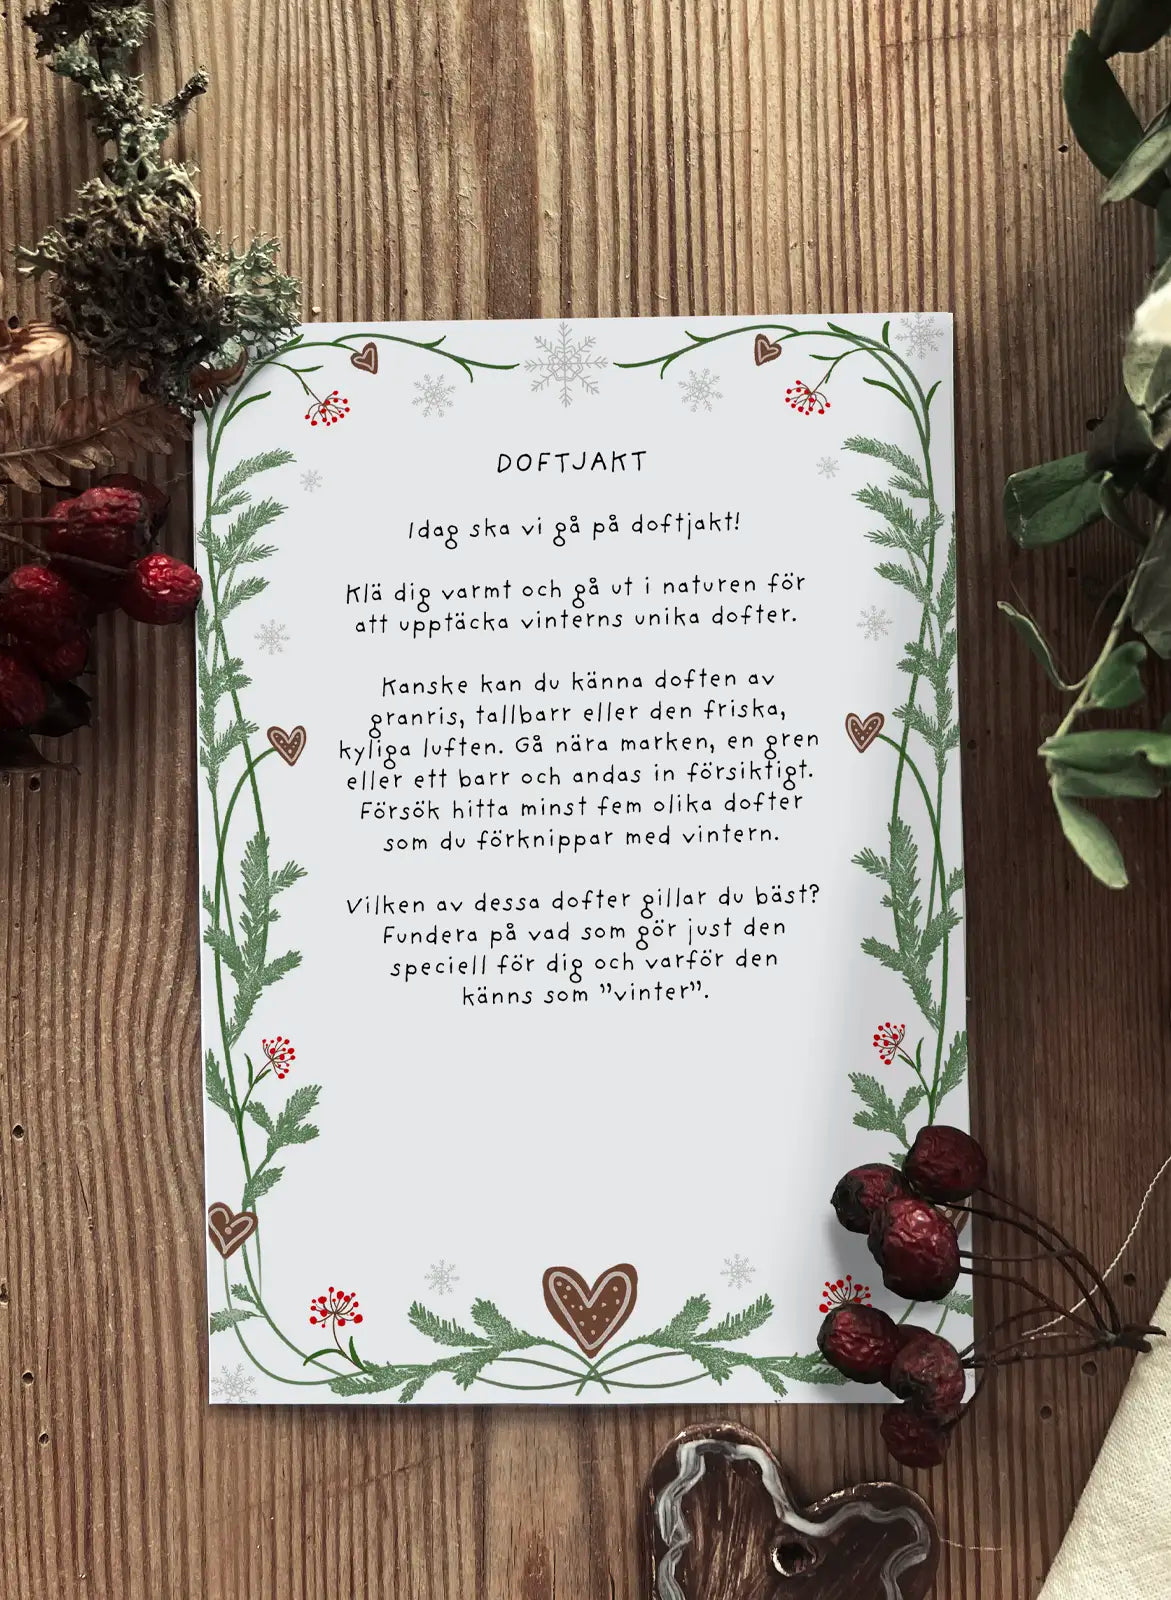 DOFTJAKT
Idag ska vi gå på doftjakt!
Klä dig varmt och gå ut i naturen för
att upptäcka vinterns unika dofter.
Kanske kan du känna doften av
granris, tallbarr eller den friska,
kyliga luften. Gå nära marken, en gren
eller ett barr och andas in försiktigt.
Försök hitta minst fem olika dofter
som du förknippar med vintern.
Vilken av dessa dofter gillar du bäst?
Fundera på vad som gör just den
speciell för dig och varför den
känns som ”vinter”.